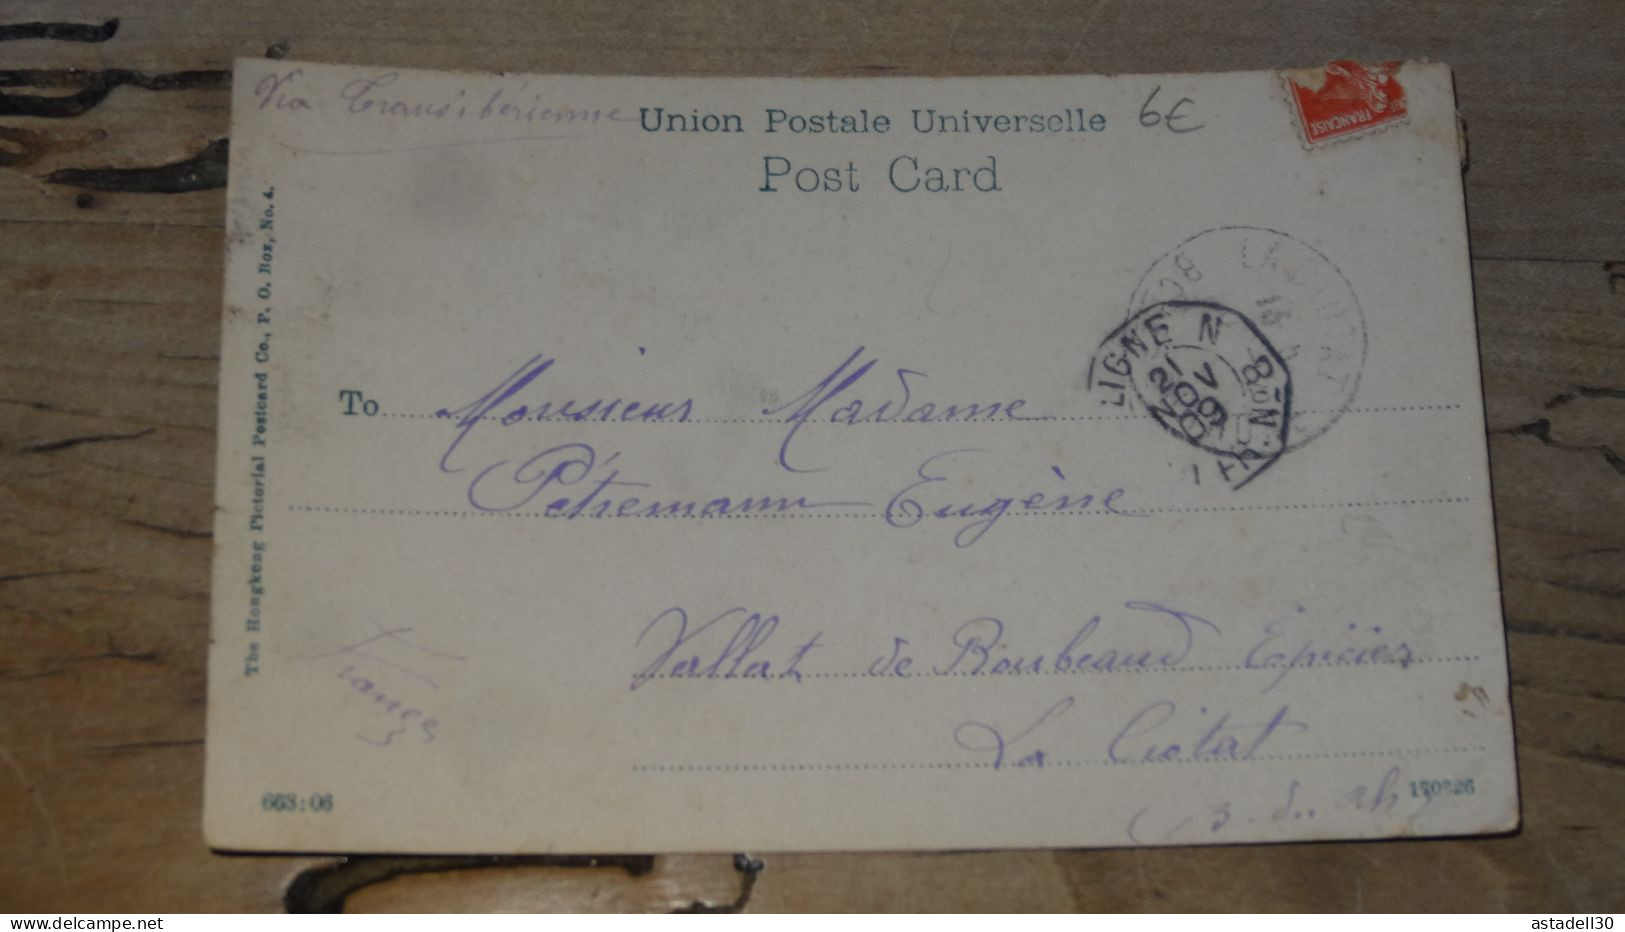 Via Transibérienne
Union Postale Universelle
6€
Post Card
FRANÇAISE
The Hongkong Pictorial Postcard Co., P. O. Box, No. 4.
LA CIOTAT
13
B
LIGNE N
PAQ. FR. No 8
1
NOV
09
To Monsieur Madame
Pétremann Eugène
Vallat de Roubeaud Epicier
La Ciotat
B. du Rh
France
663:06
170326
www.delcampe.net
astadell30